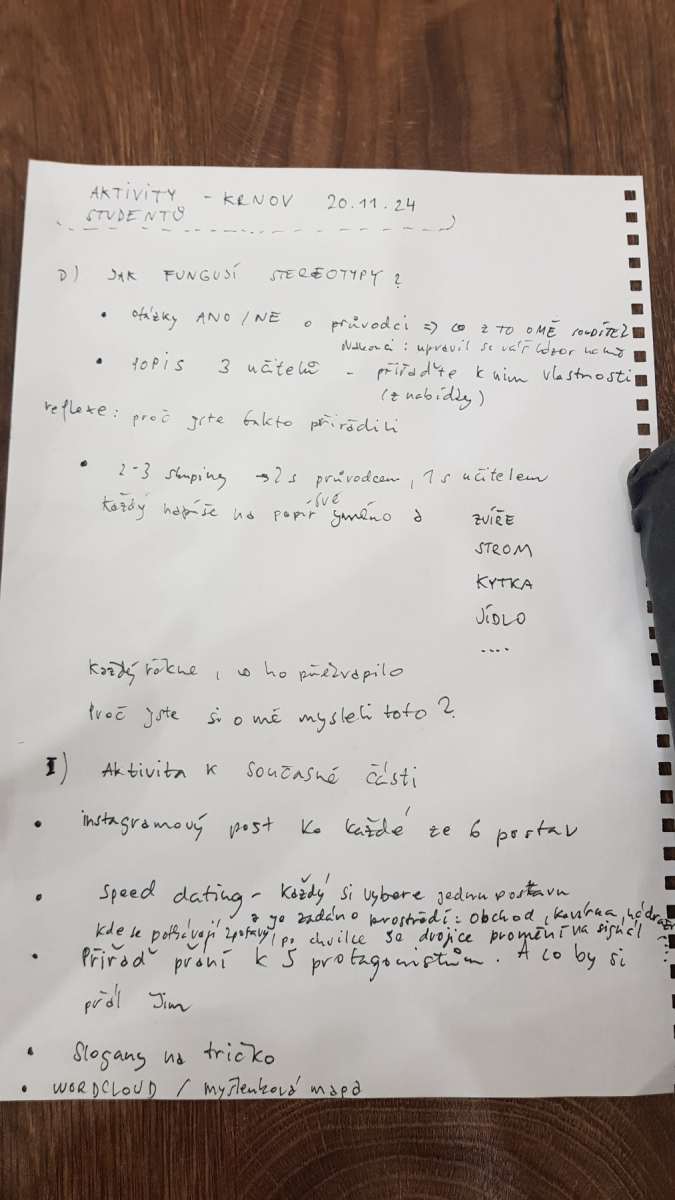 AKTIVITY - KRNOV 20.11.24
STUDENTŮ
D) JAK FUNGUJÍ STEREOTYPY?
• otázky ANO/NE o průvodci => co z TO O MĚ SOUDÍTE?
Nakonci: upravil se váš názor
• POPIS 3 učitelů - přiřaďte k nim vlastnosti
(z nabídky)
reflexe: proč jste takto přiřadili
• 2-3 skupiny → 2 s průvodcem, 1 s učitelem
každý napíše na papír své jméno a ZVÍŘE
STROM
KYTKA
JÍDLO
....
každý řekne, co ho překvapilo
Proč jste si o mě mysleli toto?
I) Aktivita k současné části
• instagramový post ke každé ze 6 postav
• speed dating - každý si vybere jednu postavu
a je zadáno prostředí: obchod, kavárna, nádraží
kde se potkávají 2 postavy, po chvilce se dvojice promění na signál ...
• Přiřaď přání k 5 protagonistům. A co by si
přál Jim
• Slogany na tričko
• WORDCLOUD / myšlenková mapa